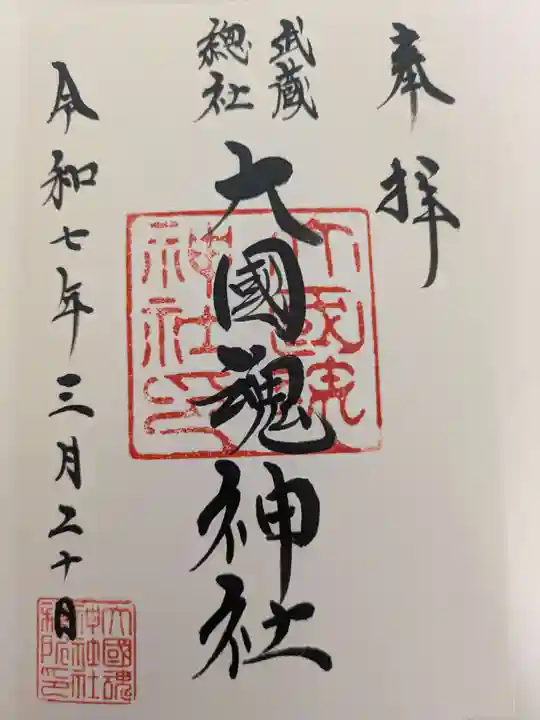 奉拝
武蔵
總社
大國魂神社
大國魂
神社印
令和七年三月二十日
大國魂
神社社